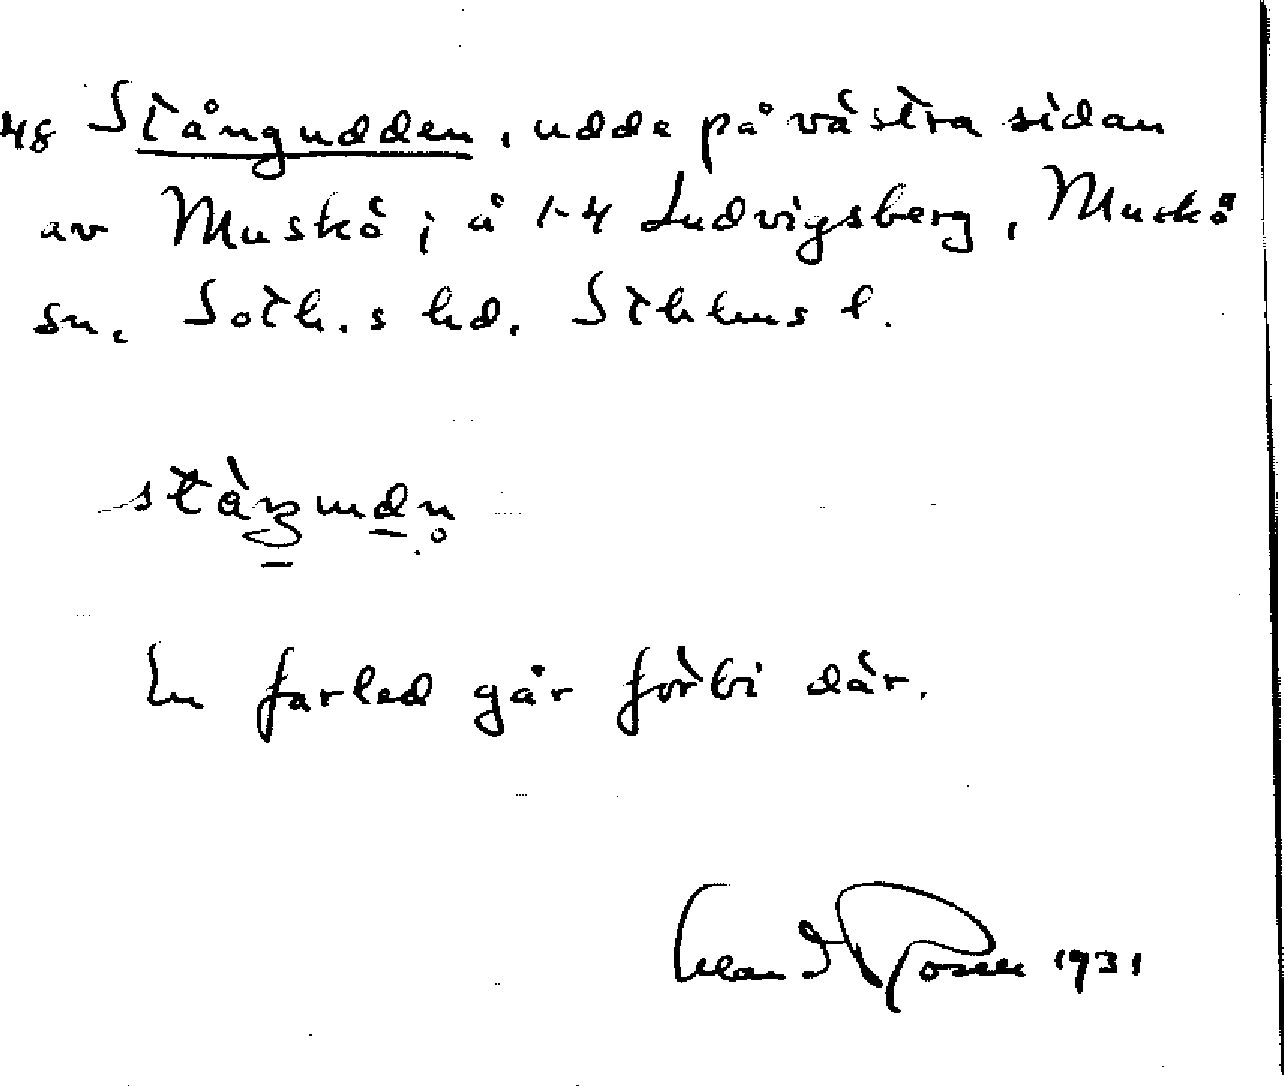 48 Stångudden, udde på västra sidan
av Muskö; å 1-4 Ludvigsberg, Muskö
sn. Soth.s hd. Sthlms l.
En farled går förbi där.
1931